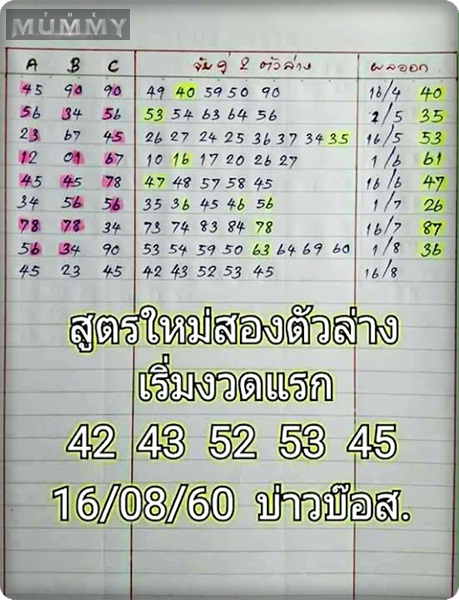 THE
MUMMY
A B C จับคู่ 2 ตัวล่าง ผลออก
45 90 90 49 40 59 50 90 16/4 40
56 34 56 53 54 63 64 56 2/5 35
23 67 45 26 27 24 25 36 37 34 35 16/5 53
12 01 67 10 16 17 20 26 27 1/6 61
45 45 78 47 48 57 58 45 16/6 47
34 56 56 35 36 45 46 56 1/7 26
78 78 34 73 74 83 84 78 16/7 87
56 34 90 53 54 59 50 63 64 69 60 1/8 36
45 23 45 42 43 52 53 45 16/8
สูตรใหม่สองตัวล่าง
เริ่มงวดแรก
42 43 52 53 45
16/08/60 บ่าวบ๊อส.